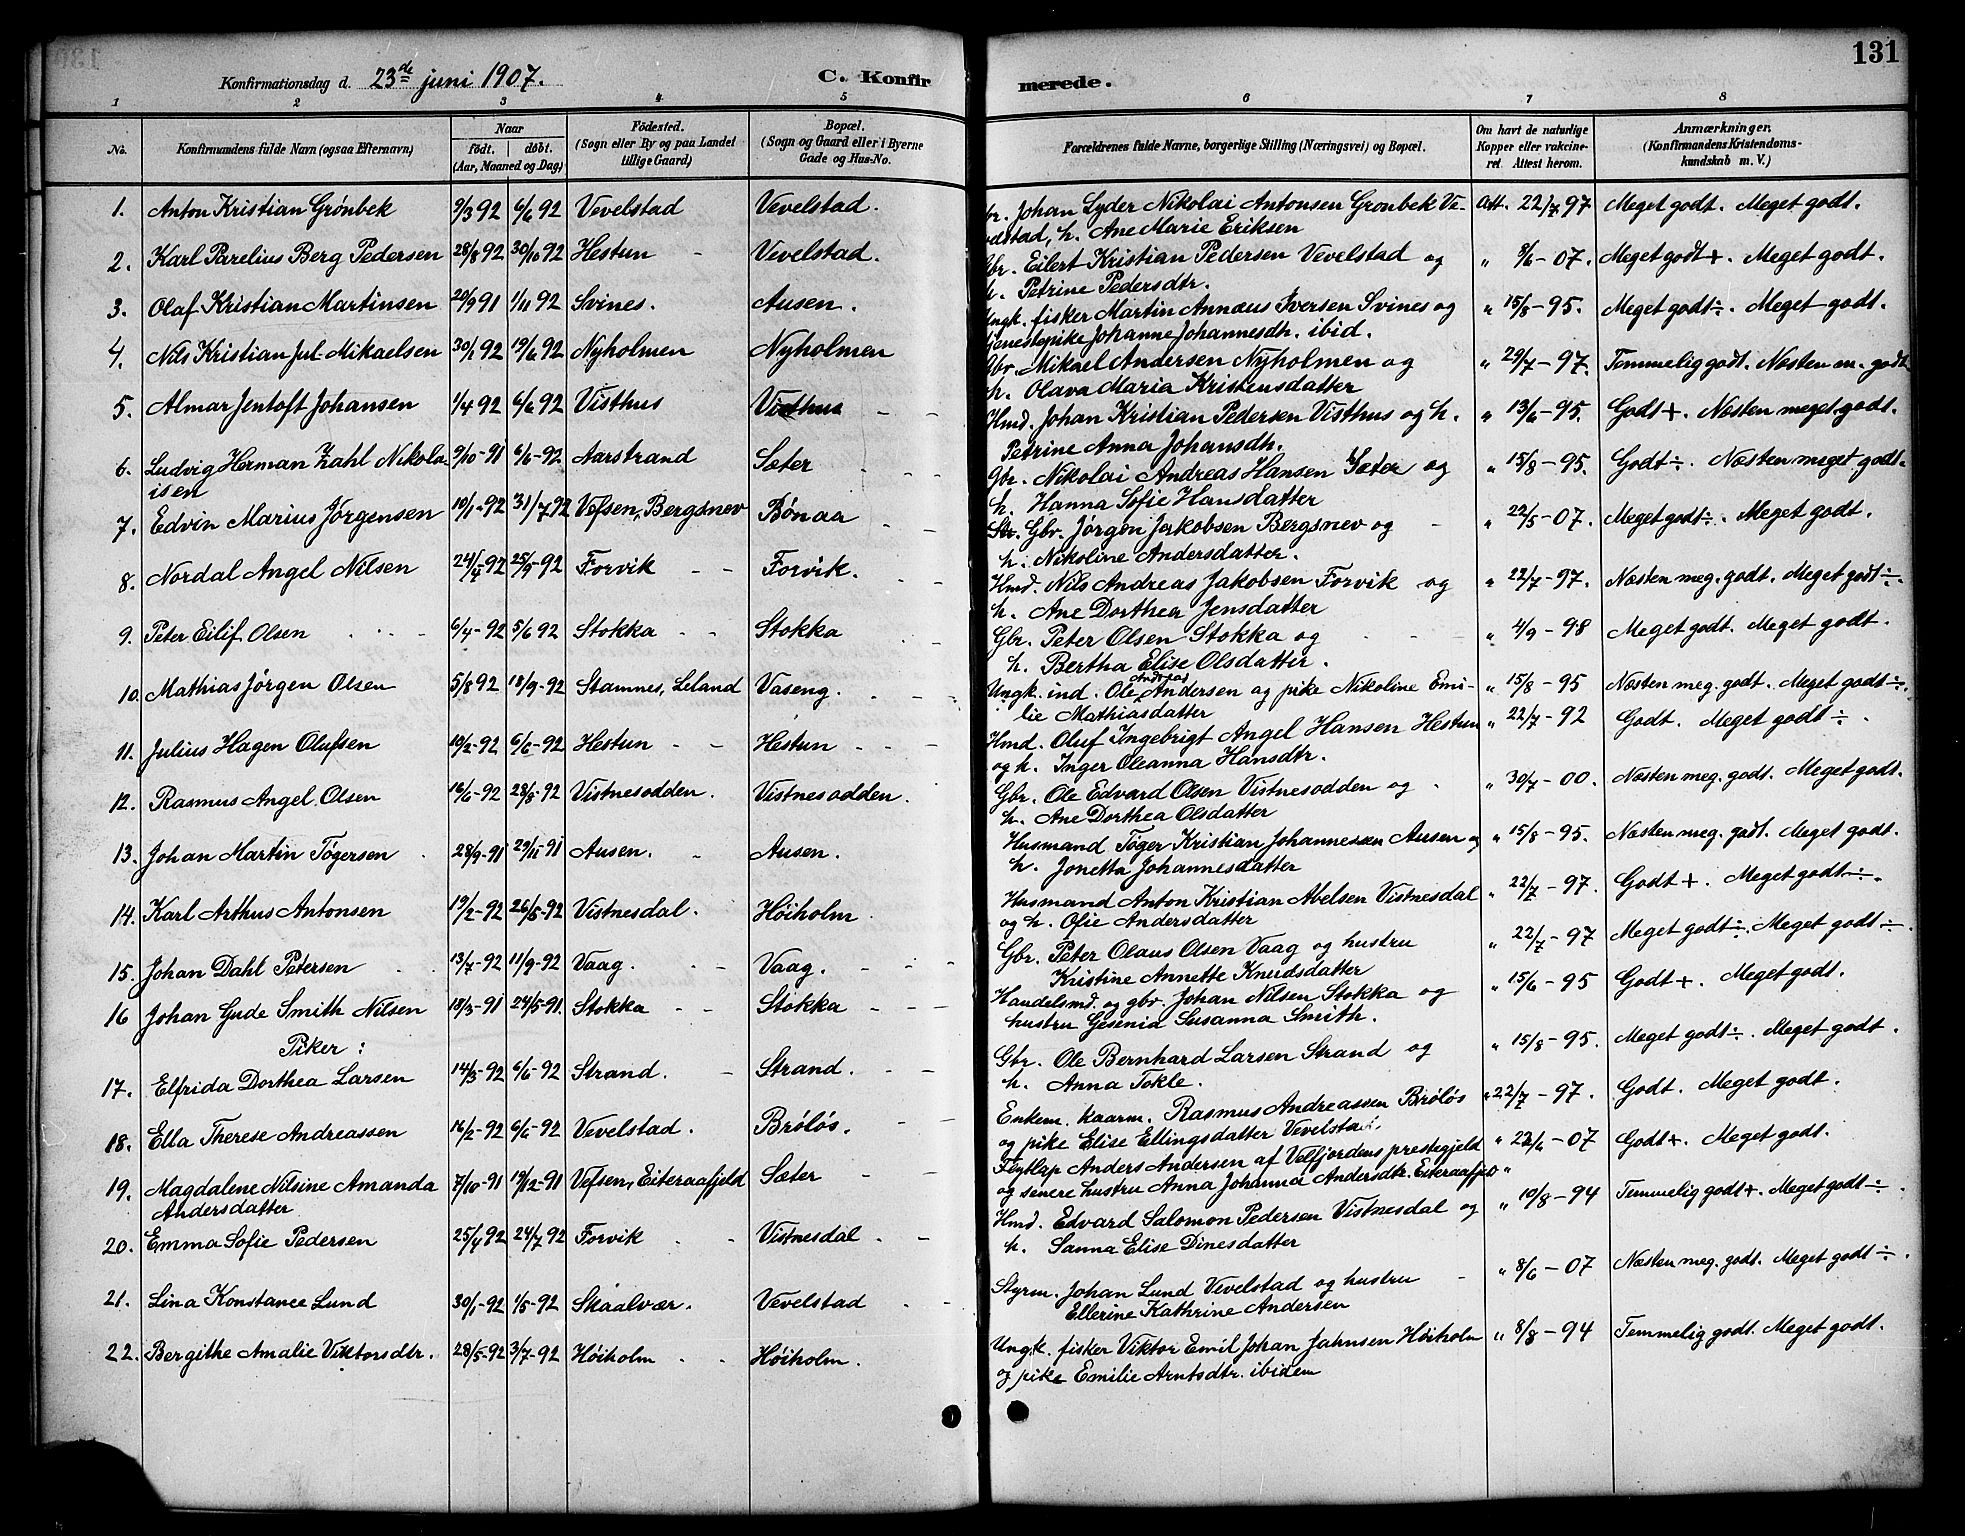 131
Konfirmationsdag d. 23de juni 1907. C. Konfirmerede.
1 2 3 4 5 6 7 8
No. | Konfirmandens fulde Navn (ogsaa Efternavn) | Naar födt. döbt. (Aar, Maaned og Dag) | Födested. (Sogn eller By og paa Landet tillige Gaard) | Bopæl. (Sogn og Gaard eller i Byerne Gade og Hus-No. | Forældrenes fulde Navne, borgerlige Stilling (Næringsvei) og Bopæl. | Om havt de naturlige Kopper eller vakcineret Attest herom. | Anmærkninger. (Konfirmandens Kristendomskundskab m. V.)
1. Anton Kristian Grönbek 9/3 92 6/6 92 Vevelstad Vevelstad. Gbr. Johan Lyder Nikolai Antonsen Gronbek Ve- Att. 22/7 97 Meget godt. Meget godt.
velstad, h. Ane Marie Eriksen
2. Karl Parelius Berg Pedersen 28/8 92 30/10 92 Hestun - Vevelstad. Gbr. Eilert Kristian Pedersen Vevelstad og " 8/6-07. Meget godt +. Meget godt.
h. Petrine Pedersdtr.
3. Olaf Kristian Martinsen 20/9 91 1/11 92 Svines. Ausen. Ungk. fisker Martin Annæus Iversen Svines og " 15/8-95. Meget godt ÷. Meget godt.
tjenestepike Johanne Johannesdtr. ibid.
4. Nils Kristian Jul Mikaelsen 30/1 92 19/6 92 Nyholmen Nyholmen Gbr. Mikael Andersen Nyholmen og " 29/7-97. Temmelig godt. Næsten m. godt
h. Olava Maria Kristensdatter
5. Almar Jentoft Johansen 1/4 92 6/6 92 Visthus Visthus - - Hmd. Johan Kristian Pedersen Visthus og h. " 13/6-95. Godt +. Næsten meget godt.
Petrine Anna Johansdtr.
6. Ludvig Herman Zahl Nikola- 9/10-91 6/6-92 Aarstrand Sæter - - Gbr. Nikolai Andreas Hansen Sæter og " 15/8-95. Godt ÷. Næsten meget godt.
isen h. Hanna Sofie Hansdatter
7. Edvin Marius Jörgensen 10/1-92 31/7 92 Vefsen, Bergsnev Bönaa - - Gbr. Jörgen Jakobsen Bergsnev og - " 22/5-07. Meget godt ÷. Meget godt.
h. Nikoline Andersdatter.
8. Nordal Angel Nilsen 24/4-92 25/9-92 Forvik - - Forvik. - - Hmd. Nils Andreas Jakobsen Forvik og " 22/7-97. Næsten meg. godt. Meget godt ÷.
h. Ane Dorthea Jensdatter
9. Peter Eilif Olsen 6/4-92 5/6 92 Stokka - - Stokka - - Gbr. Peter Olsen Stokka og " 4/9-98 Meget godt. Meget godt.
h. Bertha Elise Olsdatter.
10. Mathias Jörgen Olsen 5/8 92 18/9-92 Stamnes, Leland Vaseng. - - Ungk. ind. Ole Andreas Andersen og pike Nikoline Emi- " 15/8-95 Næsten meg. godt. Meget godt ÷.
lie Mathiasdatter
11. Julius Hagen Olufsen 10/2-92 6/6-92 Hestun - - Hestun - - Hmd. Oluf Ingebrigt Angel Hansen Hestun " 22/7-92 Godt. Meget godt ÷.
og h. Inger Oleanna Hansdtr.
12. Rasmus Angel Olsen 16/6-92 28/8-92 Vistnesodden. Vistnesodden. Gbr. Ole Edvard Olsen Vistnesodden og " 30/7-00. Næsten meg. godt. Meget godt.
h. Ane Dorthea Olsdatter
13. Johan Martin Tögersen 28/9-91 29/11-91 Ausen. - Ausen. Husmand Töger Kristian Johannessen Ausen og " 15/8-95. Næsten meg. godt. Meget godt.
h. Jonetta Johannesdatter
14. Karl Arthus Antonsen 19/2-92 26/5-92 Vistnesdal. Höiholm. Husmand Anton Kristian Abelsen Vistnesdal " 22/7-97. Godt +. Meget godt ÷.
og h. Ofie Andersdatter
15. Johan Dahl Petersen 13/7-92 11/9-92 Vaag. - - Vaag. - - - Gbr. Peter Olaus Olsen Vaag og hustru " 22/7-97 Meget godt ÷. Meget godt ÷.
Kristine Annette Knudsdatter
16 Johan Gude Smith Nilsen 18/3-91 24/5-91. Stokka - - Stokka - - - Handelsmd. og gbr. Johan Nilsen Stokka og " 15/6-95 Godt +. Meget godt.
hustru Gesenia Susanna Smith.
Piker:
17. Elfrida Dorthea Larsen 14/3-92 6/6-92 Strand. - Strand. - - Gbr. Ole Bernhard Larsen Strand og " 15/8-95. Meget godt ÷. Meget godt.
h. Anna Tokle.
18. Ella Therese Andreassen 16/2-92 6/6-92 Vevelstad. Brölös. - - Enkem. kaarm. Rasmus Andreassen Brölös " 22/7-97. Godt. Meget godt.
og pike Elise Ellingsdatter Vevelstad.
19. Magdalene Nilsine Amanda 7/10-91 19/12-91 Vefsen, Eiteraafjeld Sæter - - Flytlap Anders Andersen af Velfjordens prestegjeld " 22/6-07 Godt +. Meget godt.
Andersdatter og senere hustru Anna Johanna Andersdtr. Eiteraafjeld "
20. Emma Sofie Pedersen 25/4 92 24/7 92 Forvik - - Vistnesdal - - Hmd. Edvard Salomon Pedersen Vistnesdal og " 10/8-94 Temmelig godt +. Meget godt ÷.
h. Sanna Elise Dinesdatter
21. Lina Konstance Lund 30/1-92 1/5-92 Skaalvær. Vevelstad - - Styrm. Johan Lund Vevelstad og hustru - " 8/6-07 Næsten meg. godt. Meget godt ÷.
Ellerine Kathrine Andersen
22. Bergithe Amalie Viktorsdtr. 28/5-92 3/7-92 Höiholm - - Höiholm. Ungk. fisker Viktor Emil Johan Jahnsen Höiholm " 8/8-94 Temmelig godt. Meget godt.
og pike Emilie Arntsdtr. ibidem